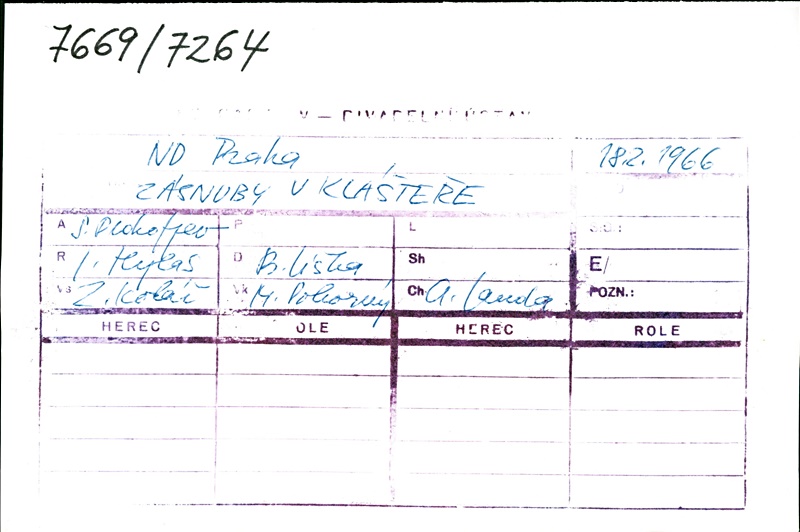 7669/7264
— DIVADELNÍ ÚSTAV
ND Praha 18.2. 1966
ZÁSNUBY V KLÁŠTEŘE
A S. Prokofjev P L
R D B. Liška Sh E/
Vs Z. Kolář Vk M. Pokorný Ch A. Landa POZN.:
HEREC OLE HEREC ROLE